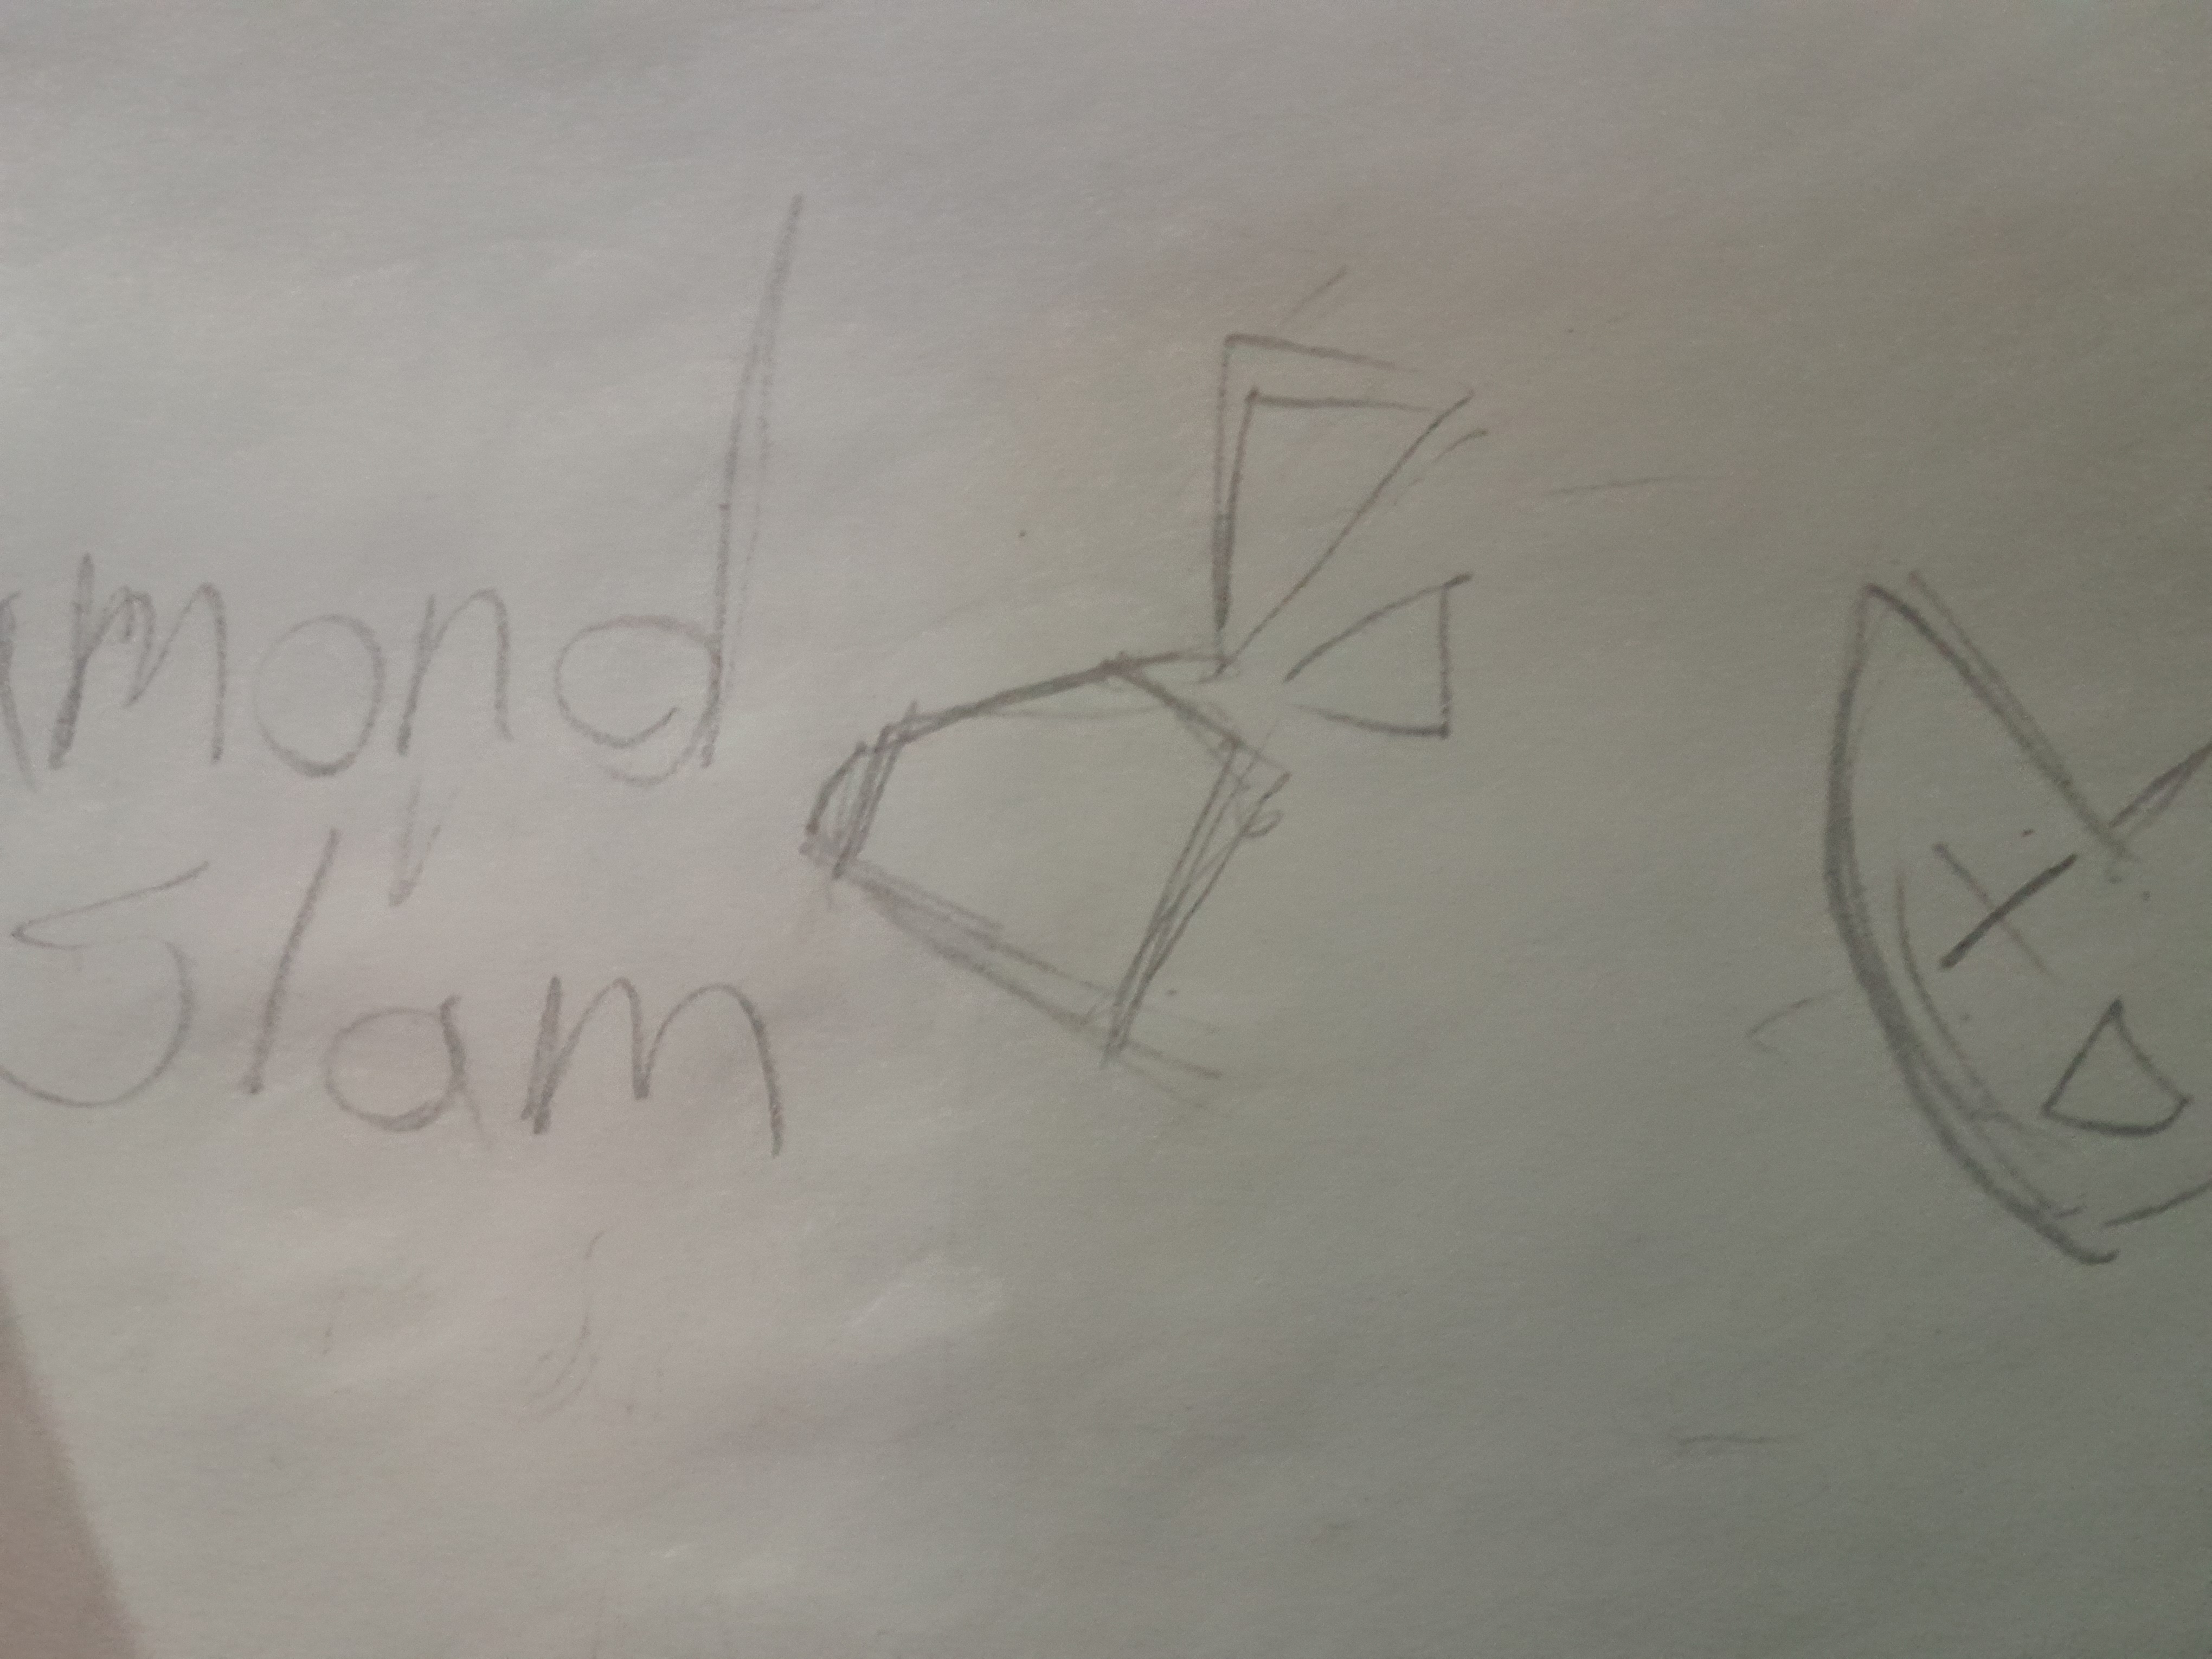 mond
Slam